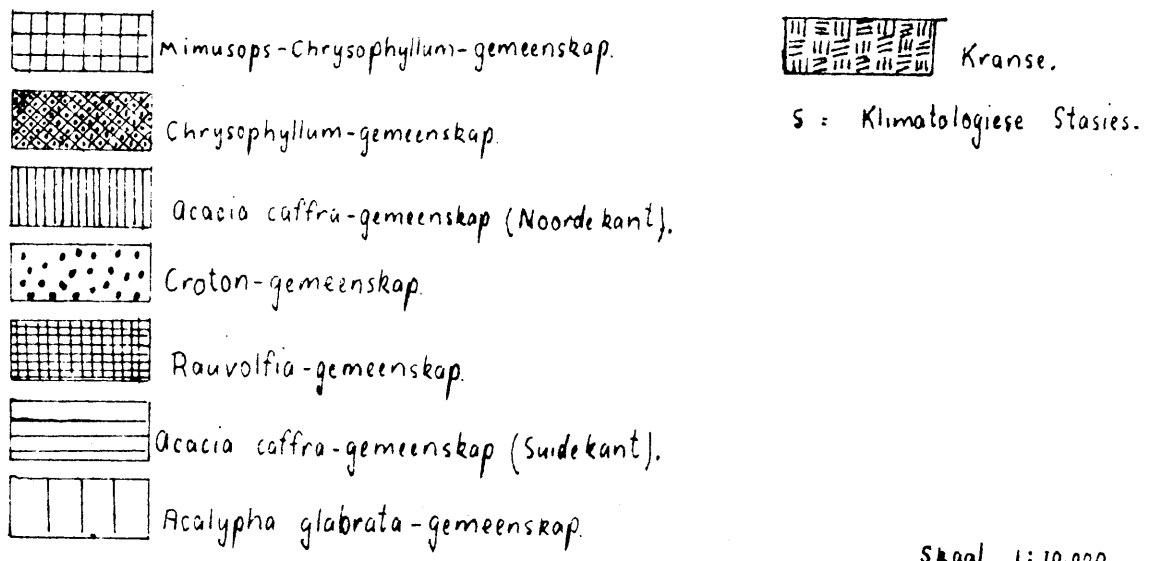 Mimusops-Chrysophyllum-gemeenskap.
Chrysophyllum-gemeenskap.
Acacia caffra-gemeenskap (Noordekant).
Croton-gemeenskap.
Rauvolfia-gemeenskap.
Acacia caffra-gemeenskap (Suidekant).
Acalypha glabrata-gemeenskap.
Kranse.
S = Klimatologiese Stasies.
Skaal 1:10,000